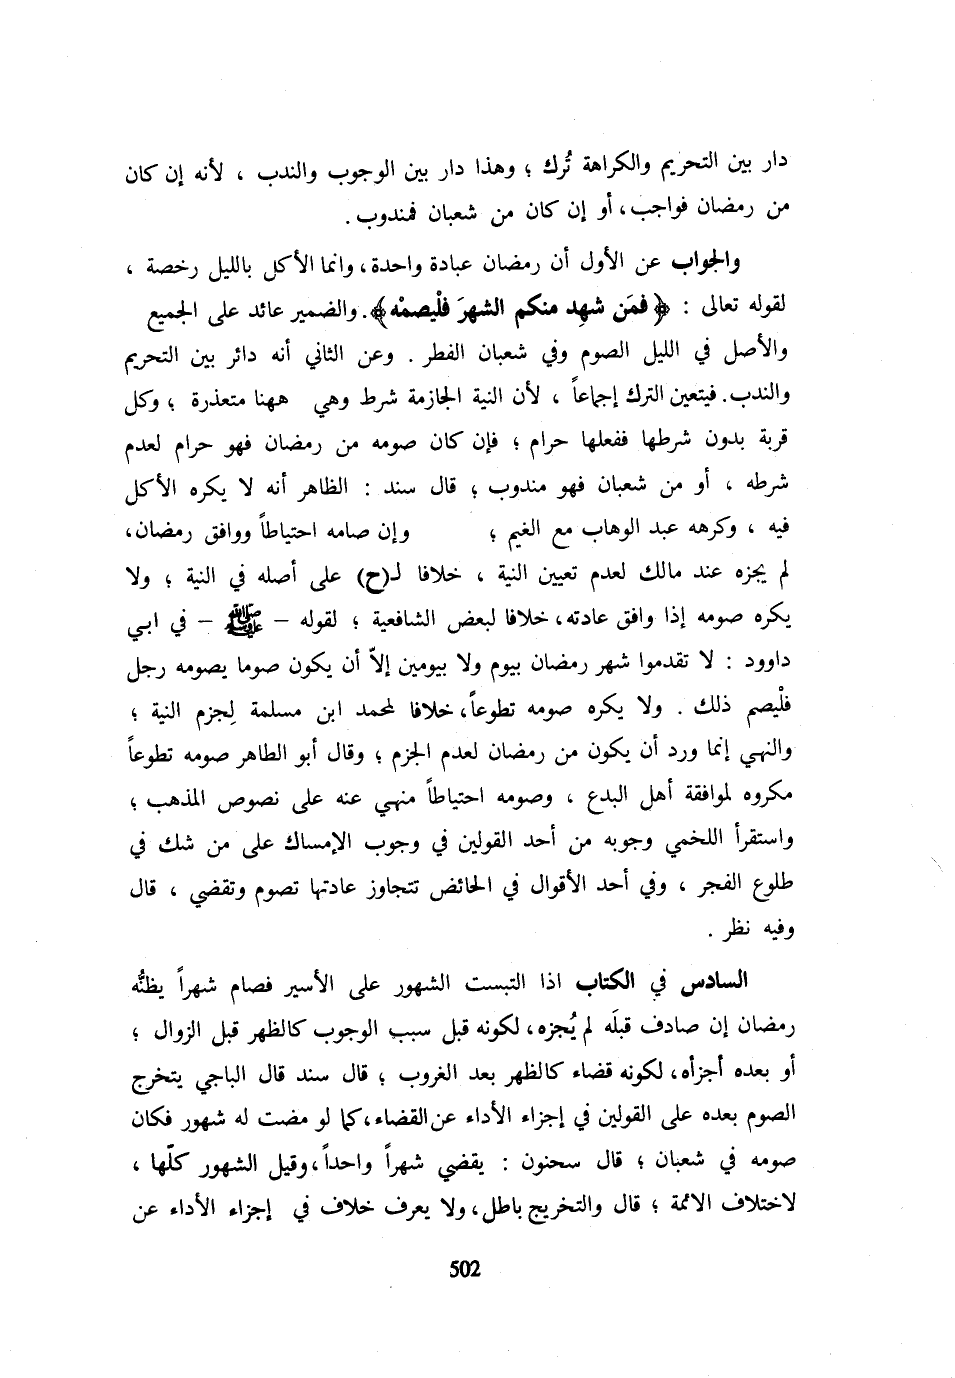 دار بين التحريم والكراهة تُرك ؛ وهذا دار بين الوجوب والندب ، لأنه إن كان
من رمضان فواجب، أو إن كان من شعبان فمندوب .
والجواب عن الأول أن رمضان عبادة واحدة، وانما الأكل بالليل رخصة ،
لقوله تعالى : ﴿ فمَن شهِد منكم الشهرَ فلْيصمْه ﴾. والضمير عائد على الجميع
والأصل في الليل الصوم وفي شعبان الفطر . وعن الثاني أنه دائر بين التحريم
والندب. فيتعين الترك إجماعاً ، لأن النية الجازمة شرط وهي ههنا متعذرة ؛ وكل
قربة بدون شرطها ففعلها حرام ؛ فإن كان صومه من رمضان فهو حرام لعدم
شرطه ، أو من شعبان فهو مندوب ؛ قال سند : الظاهر أنه لا يكره الأكل
فيه ، وكرهه عبد الوهاب مع الغيم ؛ وإن صامه احتياطاً ووافق رمضان،
لم يجزه عند مالك لعدم تعيين النية ، خلافا لـ(ح) على أصله في النية ؛ ولا
يكره صومه إذا وافق عادته، خلافا لبعض الشافعية ؛ لقوله – ﷺ – في ابي
داوود : لا تقدموا شهر رمضان بيوم ولا بيومين إلاّ أن يكون صوما يصومه رجل
فلْيصم ذلك . ولا يكره صومه تطوعاً، خلافا لمحمد ابن مسلمة لِجزم النية ؛
والنهي إنما ورد أن يكون من رمضان لعدم الجزم ؛ وقال أبو الطاهر صومه تطوعاً
مكروه لموافقة أهل البدع ، وصومه احتياطاً منهي عنه على نصوص المذهب ؛
واستقرأ اللخمي وجوبه من أحد القولين في وجوب الإمساك على من شك في
طلوع الفجر ، وفي أحد الأقوال في الحائض تتجاوز عادتها تصوم وتقضي ، قال
وفيه نظر .
السادس في الكتاب اذا التبست الشهور على الأسير فصام شهراً يظنُّه
رمضان إن صادف قبلَه لم يُجزه، لكونه قبل سبب الوجوب كالظهر قبل الزوال ؛
أو بعده أجزأه، لكونه قضاء كالظهر بعد الغروب ؛ قال سند قال الباجي يتخرج
الصوم بعده على القولين في إجزاء الأداء عن القضاء، كما لو مضت له شهور فكان
صومه في شعبان ؛ قال سحنون : يقضي شهراً واحداً، وقيل الشهور كلّها ،
لاختلاف الائمة ؛ قال والتخريج باطل، ولا يعرف خلاف في إجزاء الأداء عن
502